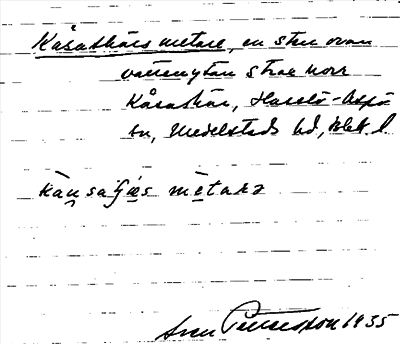 Kåsaskärs metare, en sten ovan
vattenytan strax norr
Kåsaskär, Hasslö-Aspö
sn, Medelstads hd, Blek. l.
kå̀nsaʃæs mètarə
Sven Petersson 1935